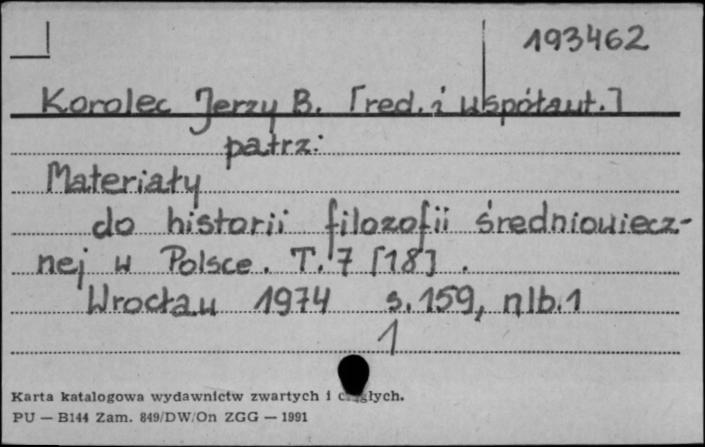 193462
Korolec Jerzy B. [red. i współaut.]
patrz:
Materiały
do historii filozofii średniowiecz-
nej w Polsce. T. 7 [18].
Wrocław 1974 s. 159, nlb. 1
1
Karta katalogowa wydawnictw zwartych i ciągłych.
PU — B144 Zam. 849/DW/On ZGG — 1991